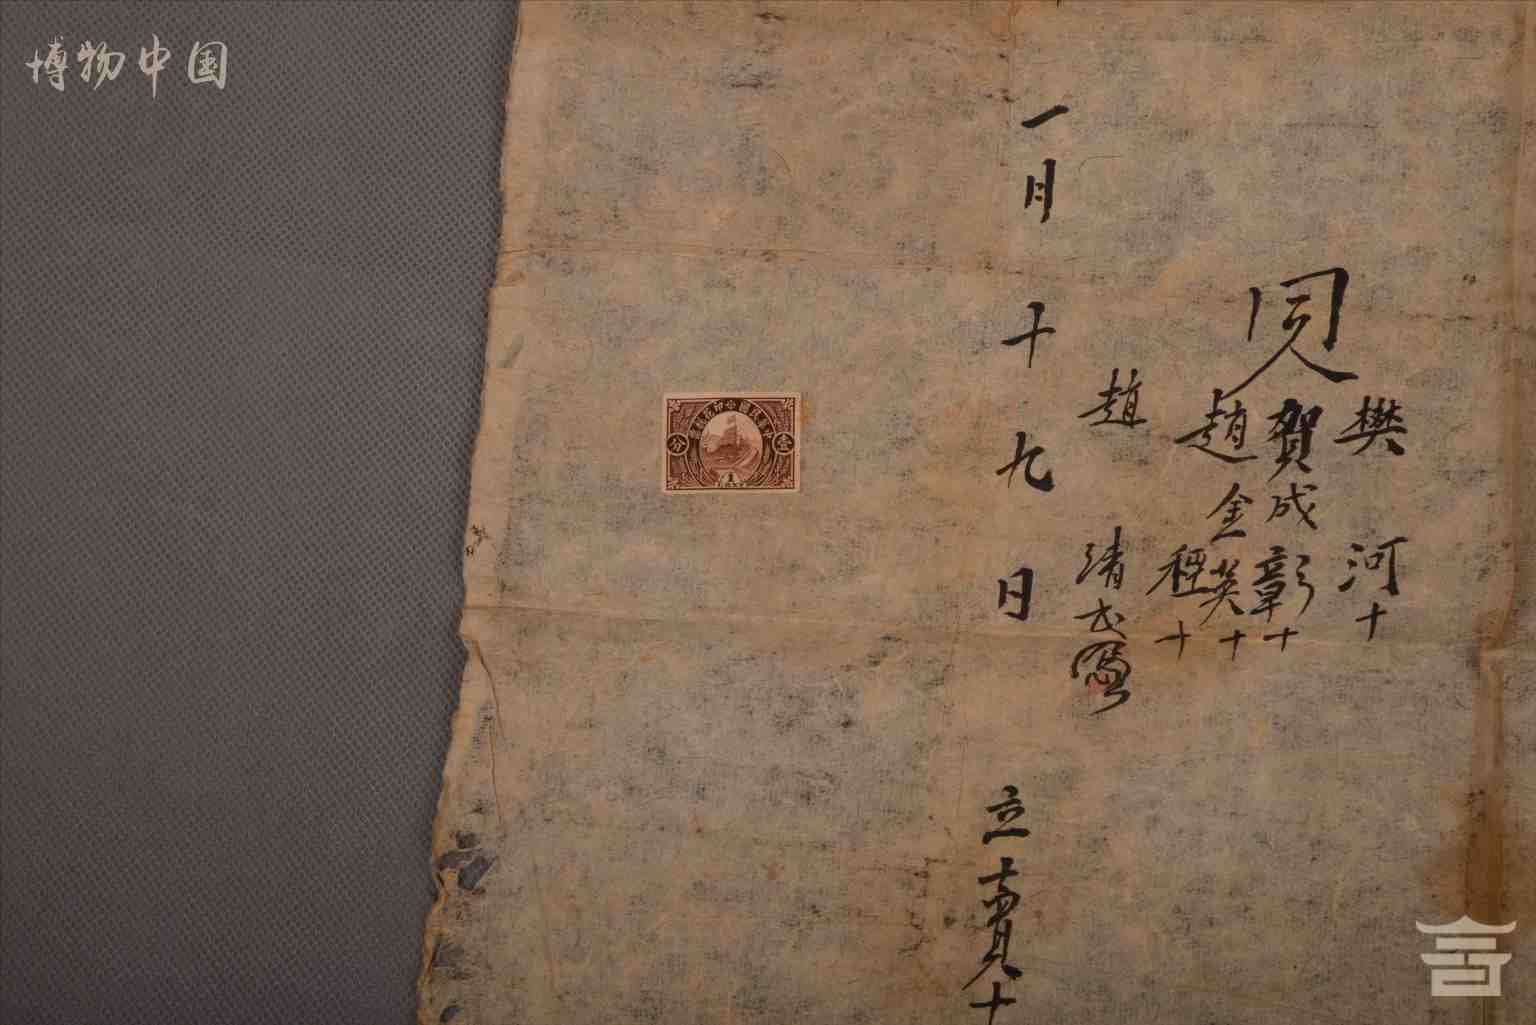 博物中国
同人
樊河十
賀成彰十
趙金英十
程十
趙清
一月十九日
立賣
十
中華民國印花税票
壹
分
1